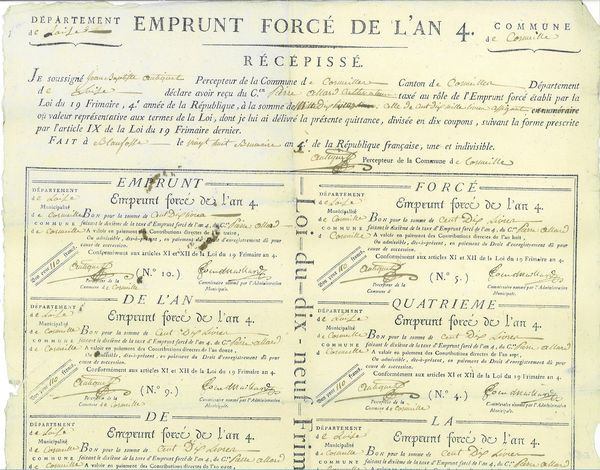 DÉPARTEMENT
de l'oise
EMPRUNT FORCÉ DE L'AN 4.
COMMUNE
de Cormeille
RÉCÉPISSÉ.
JE soussigné Jean Baptiste Percepteur de la Commune de Cormeilles Canton de Cormeilles Département
de l'oise déclare avoir reçu du C.en Pierre allard taxé au rôle de l'Emprunt forcé établi par la
Loi du 19 Frimaire, 4.e année de la République, à la somme de
ou valeur représentative aux termes de la Loi, dont je lui ai délivré la présente quittance, divisée en dix coupons, suivant la forme prescrite
par l'article IX de la Loi du 19 Frimaire dernier.
FAIT à le vingt huit Brumaire an 4.e de la République française, une et indivisible.
Percepteur de la Commune de Cormeille
EMPRUNT
DÉPARTEMENT
de l'oise
Municipalité
de Cormeille
COMMUNE
de Cormeille
Emprunt forcé de l'an 4.
BON pour la somme de Cent Dix livres
faisant le dixième de la taxe d'Emprunt forcé de l'an 4, du C.en Pierre allard
A valoir en paiement des Contributions directes de l'an
Ou admissible, dès-à-présent, en paiement de Droits d'enregistrement dû pour
cause de succession.
Conformément aux articles XI et XII de la Loi du 19 Frimaire an 4.
Bon pour 110 francs
(N.° 10.)
Percepteur de la
Commune de Cormeille
Commissaire nommé par l'Administration
Municipale.
FORCÉ
DÉPARTEMENT
de l'oise
Municipalité
de Cormeille
COMMUNE
de Cormeille
Emprunt forcé de l'an 4.
BON pour la somme de Cent Dix Livres
faisant le dixième de la taxe d'Emprunt forcé de l'an 4, du C.en Pierre allard
A valoir en paiement des Contributions directes de l'an
Ou admissible, dès-à-présent, en paiement de Droit d'enregistrement dû pour
cause de succession.
Conformément aux articles XI et XII de la Loi du 19 Frimaire an 4.
Bon pour 110 francs
(N.° 5.)
Percepteur de la
Commune d
Commissaire nommé par l'Administration
Municipale.
Loi du dix-neuf Frim
DE L'AN
DÉPARTEMENT
de l'oise
Municipalité
de Cormeille
COMMUNE
de Cormeille
Emprunt forcé de l'an 4.
BON pour la somme de Cent Dix Livres
faisant le dixième de la taxe d'Emprunt forcé de l'an 4, du C.en Pierre allard
A valoir en paiement des Contributions directes de l'an
Ou admissible, dès-à-présent, en paiement de Droit d'enregistrement dû pour
cause de succession.
Conformément aux articles XI et XII de la Loi du 19 Frimaire an 4.
Bon pour 110 francs
(N.° 9.)
Percepteur de la
Commune de Cormeille
Commissaire nommé par l'Administration
Municipale.
QUATRIEME
DÉPARTEMENT
de l'oise
Municipalité
de Cormeille
COMMUNE
de Cormeille
Emprunt forcé de l'an 4.
BON pour la somme de Cent Dix Livres
faisant le dixième de la taxe d'Emprunt forcé de l'an 4, du C.en Pierre allard
A valoir en paiement des Contributions directes de l'an
Ou admissible, dès-à-présent, en paiement de Droit d'enregistrement dû pour
cause de succession.
Conformément aux articles XI et XII de la Loi du 19 Frimaire an 4.
Bon pour 110 francs
(N.° 4.)
Percepteur de la
Commune de Cormeille
Commissaire nommé par l'Administration
Municipale.
DE
DÉPARTEMENT
de l'oise
Municipalité
de Cormeille
COMMUNE
de Cormeille
Emprunt forcé de l'an 4.
BON pour la somme de Cent Dix Livres
faisant le dixième de la taxe d'Emprunt forcé de l'an 4, du C.en Pierre allard
A valoir en paiement des Contributions directes de l'an
LA
DÉPARTEMENT
de l'oise
Municipalité
de Cormeille
COMMUNE
de Cormeille
Emprunt forcé de l'an 4.
BON pour la somme de Cent Dix Livres
faisant le dixième de la taxe d'Emprunt forcé de l'an 4, du C.en Pierre allard
A valoir en paiement des Contributions directes de l'an